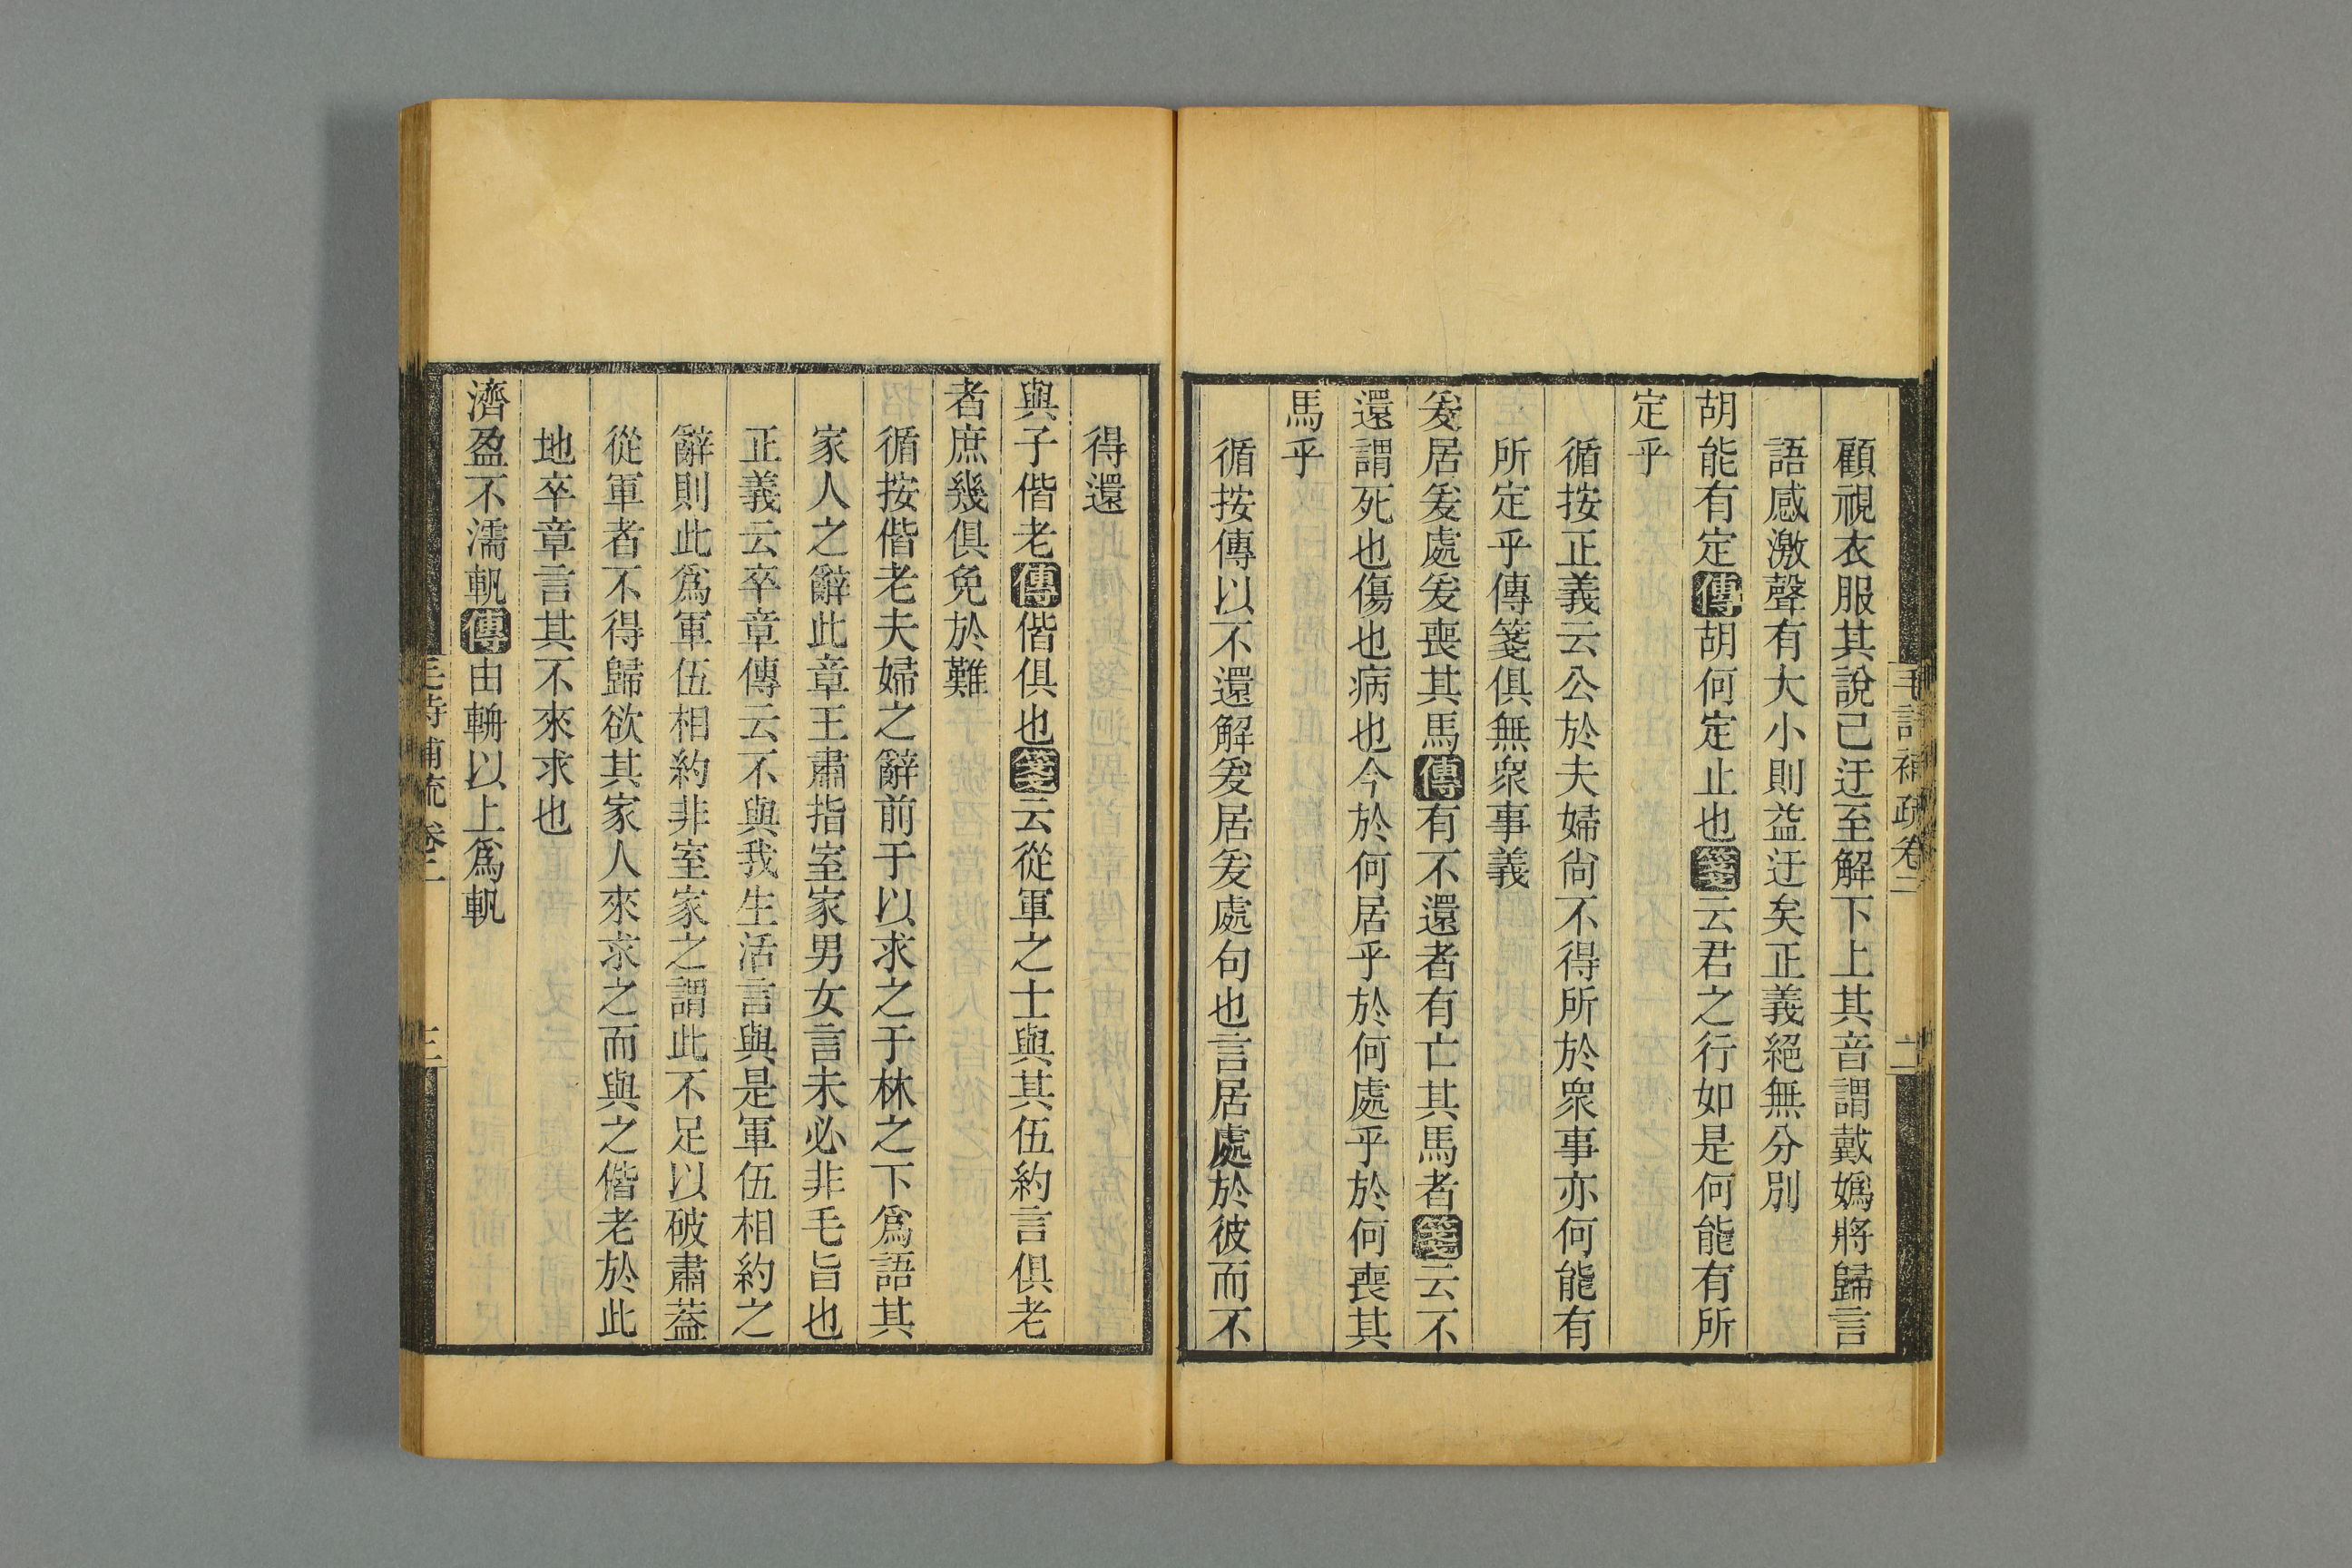 毛詩補疏卷二
二
顧視衣服其說已迂至解下上其音謂戴嬀將歸言
語感激聲有大小則益迂矣正義絕無分別
胡能有定傳胡何定止也箋云君之行如是何能有所
定乎
循按正義云公於夫婦尙不得所於衆事亦何能有
所定乎傳箋俱無衆事義
爰居爰處爰喪其馬傳有不還者有亡其馬者箋云不
還謂死也傷也病也今於何居乎於何處乎於何喪其
馬乎
循按傳以不還解爰居爰處句也言居處於彼而不
得還
與子偕老傳偕俱也箋云從軍之士與其伍約言俱老
者庶幾俱免於難
循按偕老夫婦之辭前于以求之于林之下爲語其
家人之辭此章王肅指室家男女言未必非毛旨也
正義云卒章傳云不與我生活言與是軍伍相約之
辭則此爲軍伍相約非室家之謂此不足以破肅葢
從軍者不得歸欲其家人來求之而與之偕老於此
地卒章言其不來求也
濟盈不濡軓傳由輈以上爲軓
毛詩補疏卷二
三